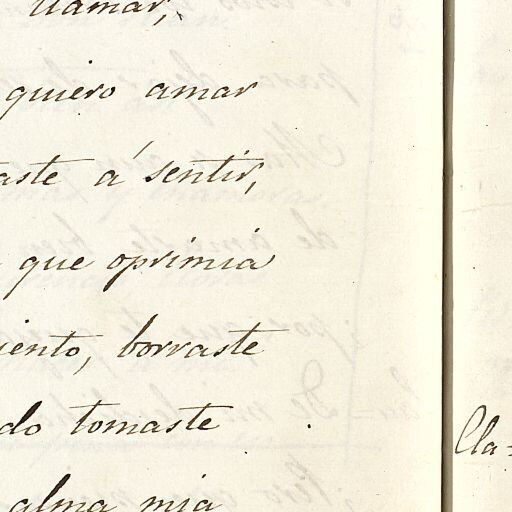 llamar,
quiero amar
aste á sentir,
que oprimia
iento, borraste
do tomaste
alma mia
Cla=